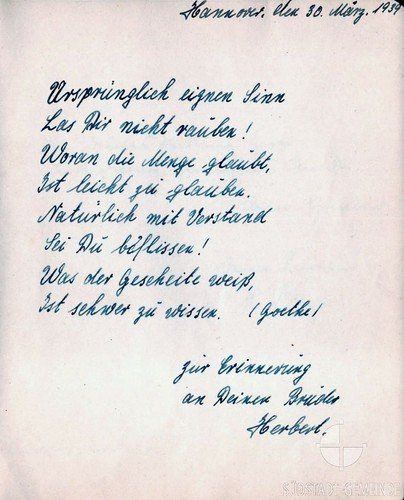 Hannover, den 30. März. 1939
Ursprünglich eignen Sinn
Las Dir nicht rauben!
Woran die Menge glaubt,
Ist leicht zu glauben.
Natürlich mit Verstand
Sei Du böflissen!
Was der Gescheite weiß,
Ist schwer zu wissen. (Goethe)
zur Erinnerung
an Deinen Bruder
Herbert.